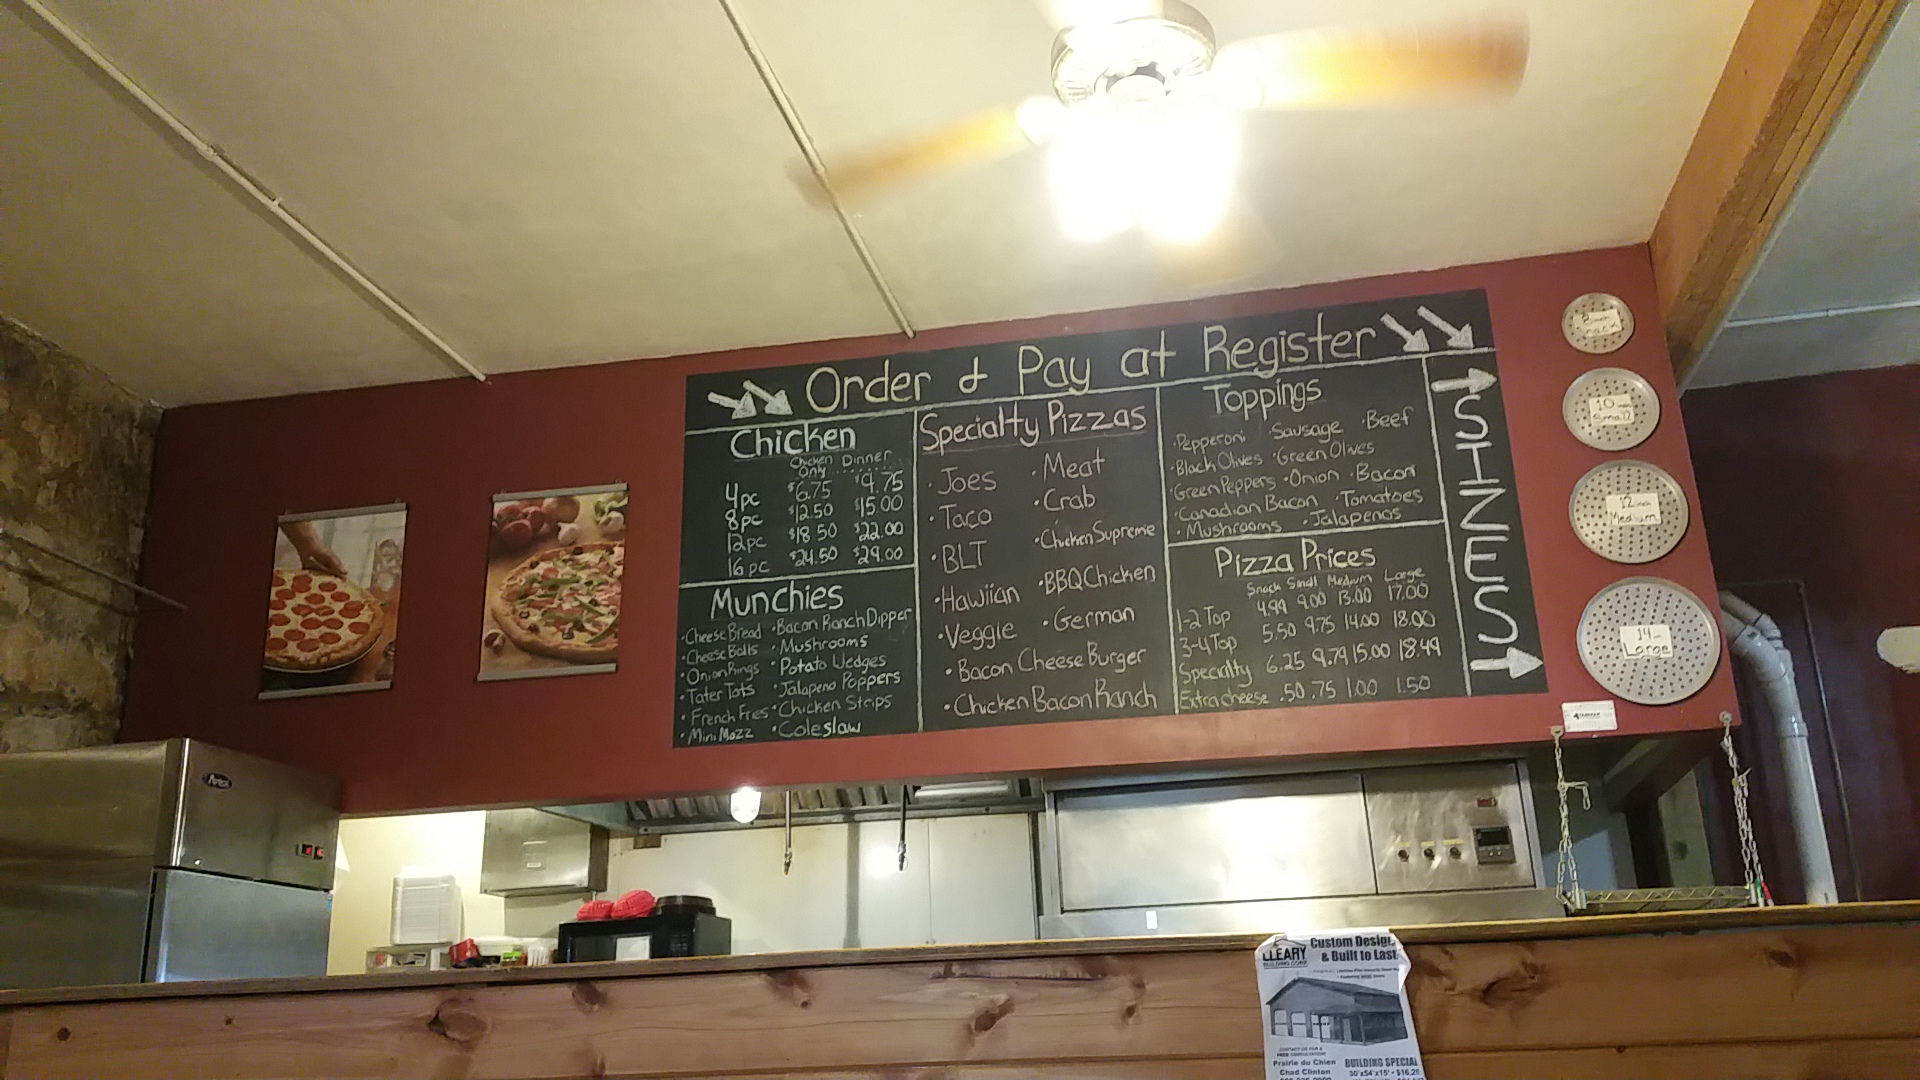 Order & Pay at Register
Chicken
Chicken Only Dinner
4pc $6.75 $9.75
8pc $12.50 $15.00
12pc $18.50 $22.00
16pc $24.50 $29.00
Munchies
·Cheese Bread ·Bacon Ranch Dipper
·Cheese Balls ·Mushrooms
·Onion Rings ·Potato Wedges
·Tater Tots ·Jalapeno Poppers
·French Fries ·Chicken Strips
·Mini Mozz ·Coleslaw
Specialty Pizzas
·Joes ·Meat
·Taco ·Crab
·BLT ·Chicken Supreme
·Hawiian ·BBQ Chicken
·Veggie ·German
·Bacon Cheese Burger
·Chicken Bacon Ranch
Toppings
·Pepperoni ·Sausage ·Beef
·Black Olives ·Green Olives
·Green Peppers ·Onion ·Bacon
·Canadian Bacon ·Tomatoes
·Mushrooms ·Jalapenos
Pizza Prices
Snack Small Medium Large
1-2 Top 4.99 9.00 13.00 17.00
3-4 Top 5.50 9.75 14.00 18.00
Specialty 6.25 9.79 15.00 18.49
Extra cheese .50 .75 1.00 1.50
SIZES
Snack
10 inch
Small
12 inch
Medium
14
Large
CLEARY
BUILDING CORP.
Custom Design
& Built to Last
CONTACT US FOR A
FREE CONSULTATION!
Prairie du Chien
Chad Clinton
BUILDING SPECIAL
30'x54'x15'